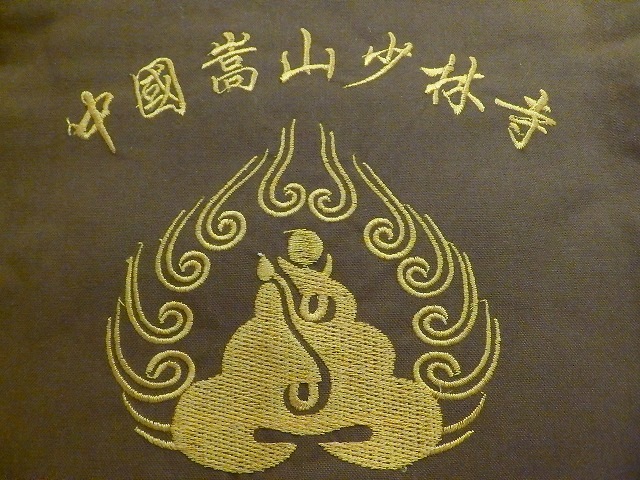 中國嵩山少林寺